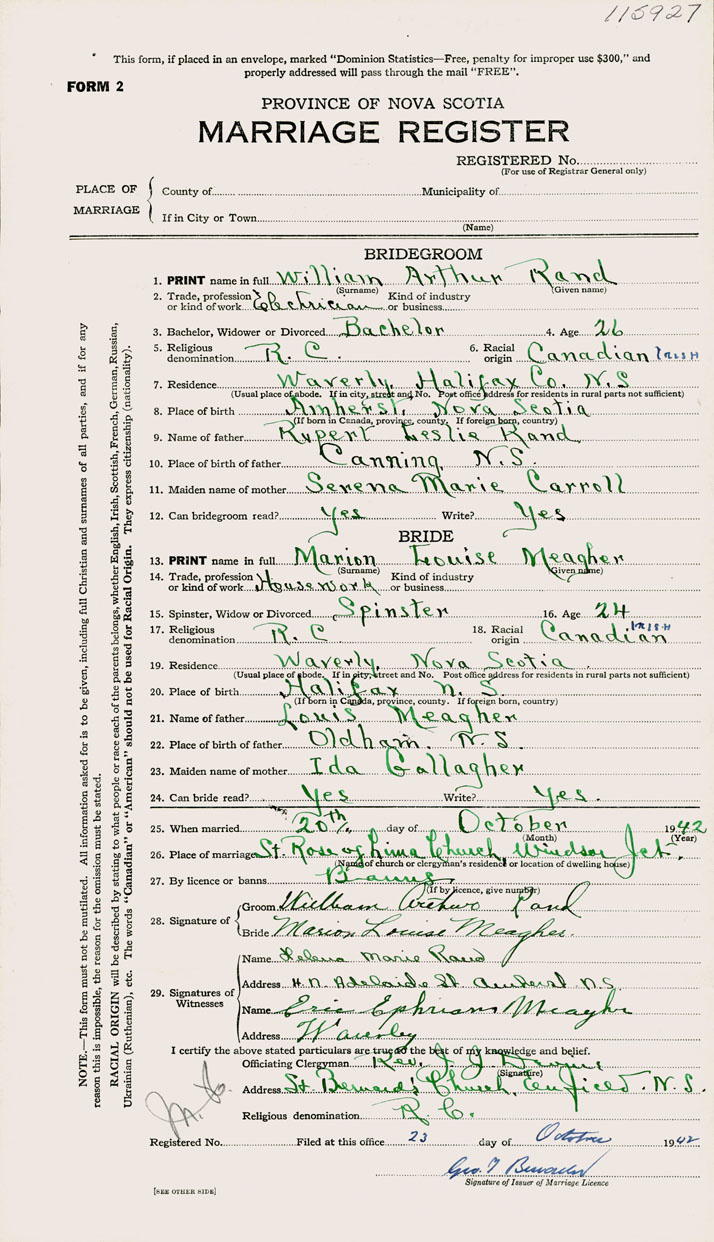 115927
This form, if placed in an envelope, marked "Dominion Statistics—Free, penalty for improper use $300," and
properly addressed will pass through the mail "FREE".
FORM 2
PROVINCE OF NOVA SCOTIA
MARRIAGE REGISTER
REGISTERED No.
(For use of Registrar General only)
PLACE OF MARRIAGE
County of Municipality of
If in City or Town
(Name)
BRIDEGROOM
1. PRINT name in full William Arthur Rand
(Surname) (Given name)
2. Trade, profession or kind of work Electrician Kind of industry or business
3. Bachelor, Widower or Divorced Bachelor 4. Age 26
5. Religious denomination R. C. 6. Racial origin Canadian IRISH
7. Residence Waverly, Halifax Co. N.S
(Usual place of abode. If in city, street and No. Post office address for residents in rural parts not sufficient)
8. Place of birth Amherst, Nova Scotia
(If born in Canada, province, county. If foreign born, country)
9. Name of father Rupert Leslie Rand
10. Place of birth of father Canning, N.S.
11. Maiden name of mother Serena Marie Carroll
12. Can bridegroom read? Yes Write? Yes
BRIDE
13. PRINT name in full Marion Louise Meagher
(Surname) (Given name)
14. Trade, profession or kind of work Housework Kind of industry or business
15. Spinster, Widow or Divorced Spinster 16. Age 24
17. Religious denomination R. C 18. Racial origin Canadian IRISH
19. Residence Waverly, Nova Scotia
(Usual place of abode. If in city, street and No. Post office address for residents in rural parts not sufficient)
20. Place of birth Halifax N. S.
(If born in Canada, province, county. If foreign born, country)
21. Name of father Louis Meagher
22. Place of birth of father Oldham. N.S.
23. Maiden name of mother Ida Gallagher
24. Can bride read? Yes Write? Yes.
25. When married 20th day of October 1942
(Month) (Year)
26. Place of marriage St. Rose of Lima Church, Windsor Jct.
(Name of church or clergyman's residence or location of dwelling house)
27. By licence or banns Banns
(If by licence, give number)
28. Signature of
Groom William Arthur Rand
Bride Marion Louise Meagher.
29. Signatures of Witnesses
Name Helena Marie Rand
Address Adelaide St. Amherst N.S.
Name Eric Ephriam Meagher
Address Waverley
I certify the above stated particulars are true to the best of my knowledge and belief.
Officiating Clergyman Rev. J. J.
(Signature)
Address St. Bernard's Church, Enfield. N.S.
Religious denomination R. C.
Registered No. Filed at this office 23 day of October 1942
Geo. T
Signature of Issuer of Marriage Licence
[SEE OTHER SIDE]
NOTE.—This form must not be mutilated. All information asked for is to be given, including full Christian and surnames of all parties, and if for any
reason this is impossible, the reason for the omission must be stated.
RACIAL ORIGIN will be described by stating to what people or race each of the parents belongs, whether English, Irish, Scottish, French, German, Russian,
Ukrainian (Ruthenian), etc. The words "Canadian" or "American" should not be used for Racial Origin. They express citizenship (nationality).